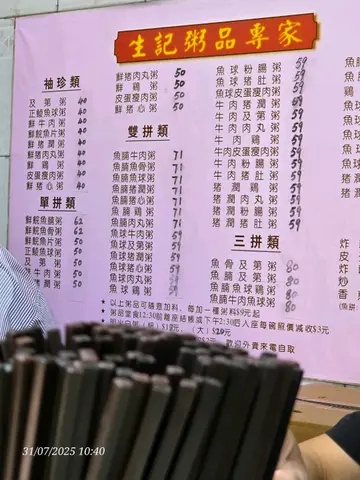 生記粥品專家
袖珍類
及第粥 40
正鯪魚球粥 40
鮮牛肉粥 40
鮮鯇魚片粥 40
鮮豬潤粥 40
鮮豬肉丸粥 40
鮮雞粥 40
皮蛋瘦肉粥 40
鮮豬心粥 40
單拼類
鮮鯇魚腩粥 62
鮮鯇魚骨粥 62
鮮鯇魚片粥 50
正鯪魚球粥 50
及第粥 50
鮮牛肉粥 50
鮮豬潤粥 50
鮮豬肉丸粥 50
鮮雞粥 50
皮蛋瘦肉粥 50
鮮豬心粥 50
雙拼類
魚腩牛肉粥 71
魚腩魚骨粥 71
魚腩魚球粥 71
魚腩豬潤粥 71
魚腩豬心粥 71
魚腩雞粥 71
魚腩肉丸粥 71
魚球牛肉粥 59
魚球及第粥 59
魚球豬潤粥 59
魚球豬心粥 59
魚球肉丸粥 59
魚球雞粥 59
魚球粉腸粥 59
魚球豬肚粥 59
魚球皮蛋瘦肉粥 59
牛肉豬潤粥 59
牛肉及第粥 59
牛肉肉丸粥 59
牛肉雞粥 59
牛肉皮蛋瘦肉粥 59
牛肉粉腸粥 59
牛肉豬肚粥 59
豬潤雞粥 59
豬潤粉腸粥 59
豬潤豬心粥 59
三拼類
魚骨及第粥 80
魚腩及第粥 80
魚腩魚球豬潤粥 80
魚腩牛肉魚球粥 80
★以上粥品可隨意加料，每加一種粥料$9元起
★粥品堂食12:30前離座結帳或下午2:30后入座每碗照價減收$3元
$19元，(大) $20元
歡迎外賣來電自取
31/07/2025 10:40